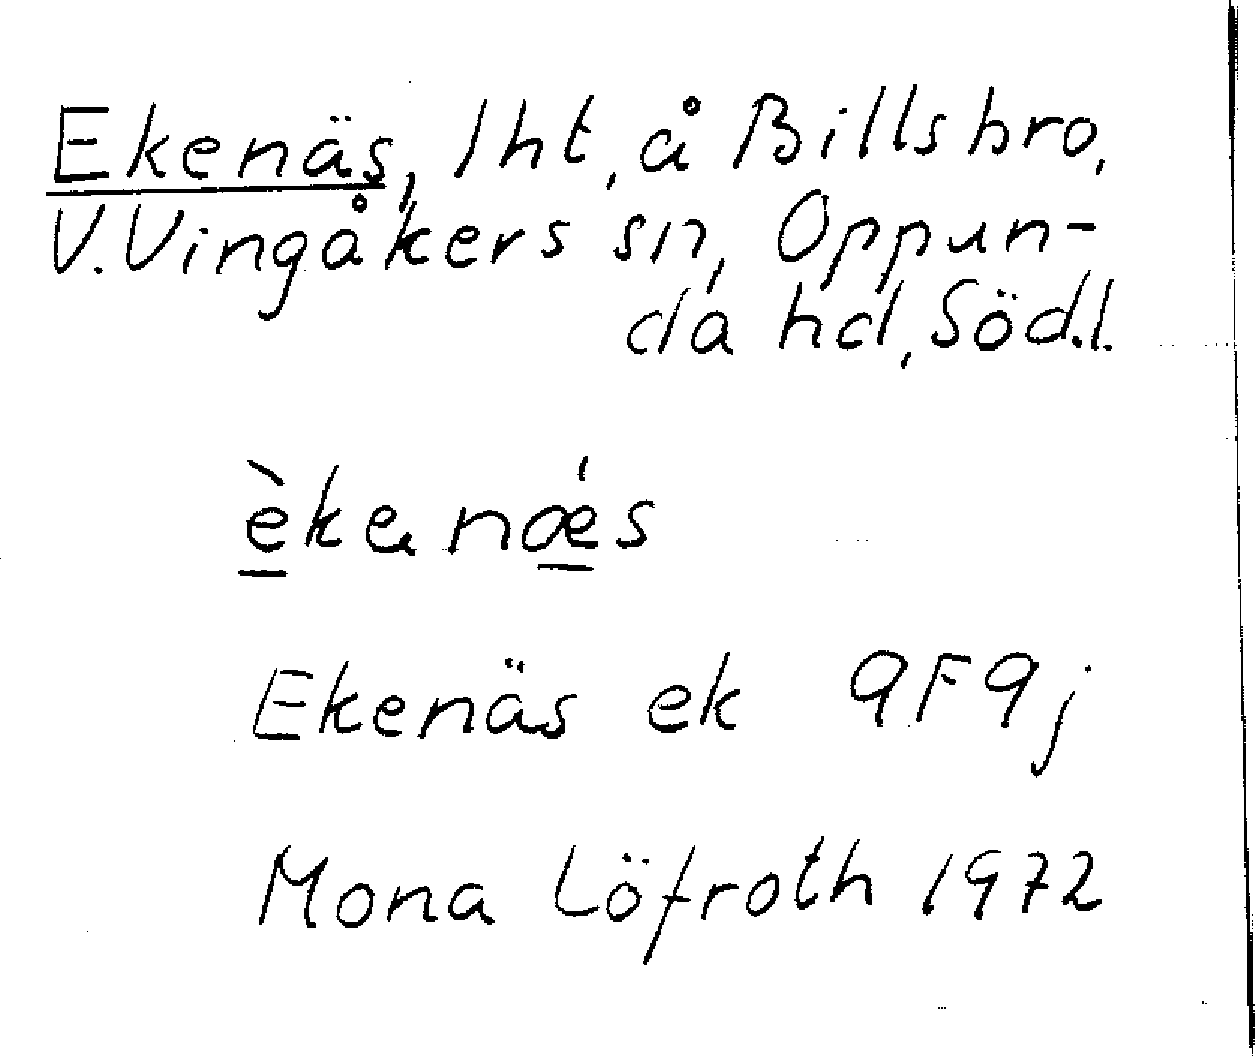 Ekenäs, lht, å Billsbro,
V. Vingåkers sn, Oppun-
da hd, Söd.l.
èkenǽs
Ekenäs ek 9F9j
Mona Löfroth 1972